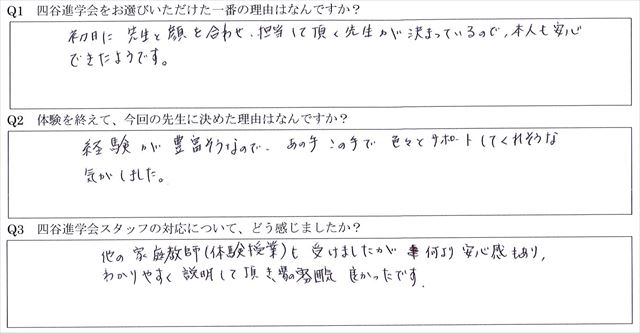 Q1 四谷進学会をお選びいただけた一番の理由はなんですか？
初日に先生と顔を合わせ、担当して頂く先生が決まっているので、本人も安心
できたようです。
Q2 体験を終えて、今回の先生に決めた理由はなんですか？
経験が豊富そうなので、あの手この手で色々とサポートしてくれそうな
気がしました。
Q3 四谷進学会スタッフの対応について、どう感じましたか？
他の家庭教師(体験授業)も受けましたが何より安心感もあり、
わかりやすく説明して頂き 雰囲気 良かったです.